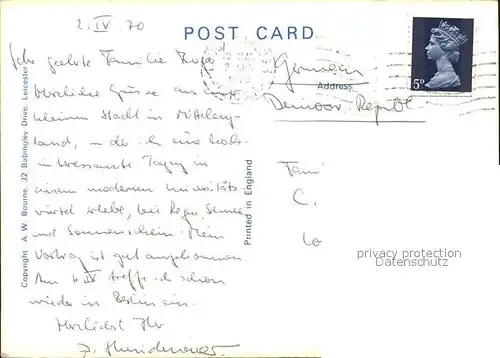 2. IV 70
POST CARD
Sehr geehrte Familie
herzliche Grüsse aus einer
kleinen Stadt in Mitteleng-
land, in der ich eine sehr
interessante Tagung in
einem modernen Universitäts
viertel erlebe, bei Regen, Schnee
und Sonnenschein. Mein
Vortrag ist gut angekommen
Am IV treffe ich schon
wieder in Berlin ein.
Herzlichst Ihr
5D
German
Address
Democr. Republ
Fami
C.
Lo
privacy protection
Datenschutz
Printed in England
Copyright A. W. Bourne, 32 Babingley Drive, Leicester